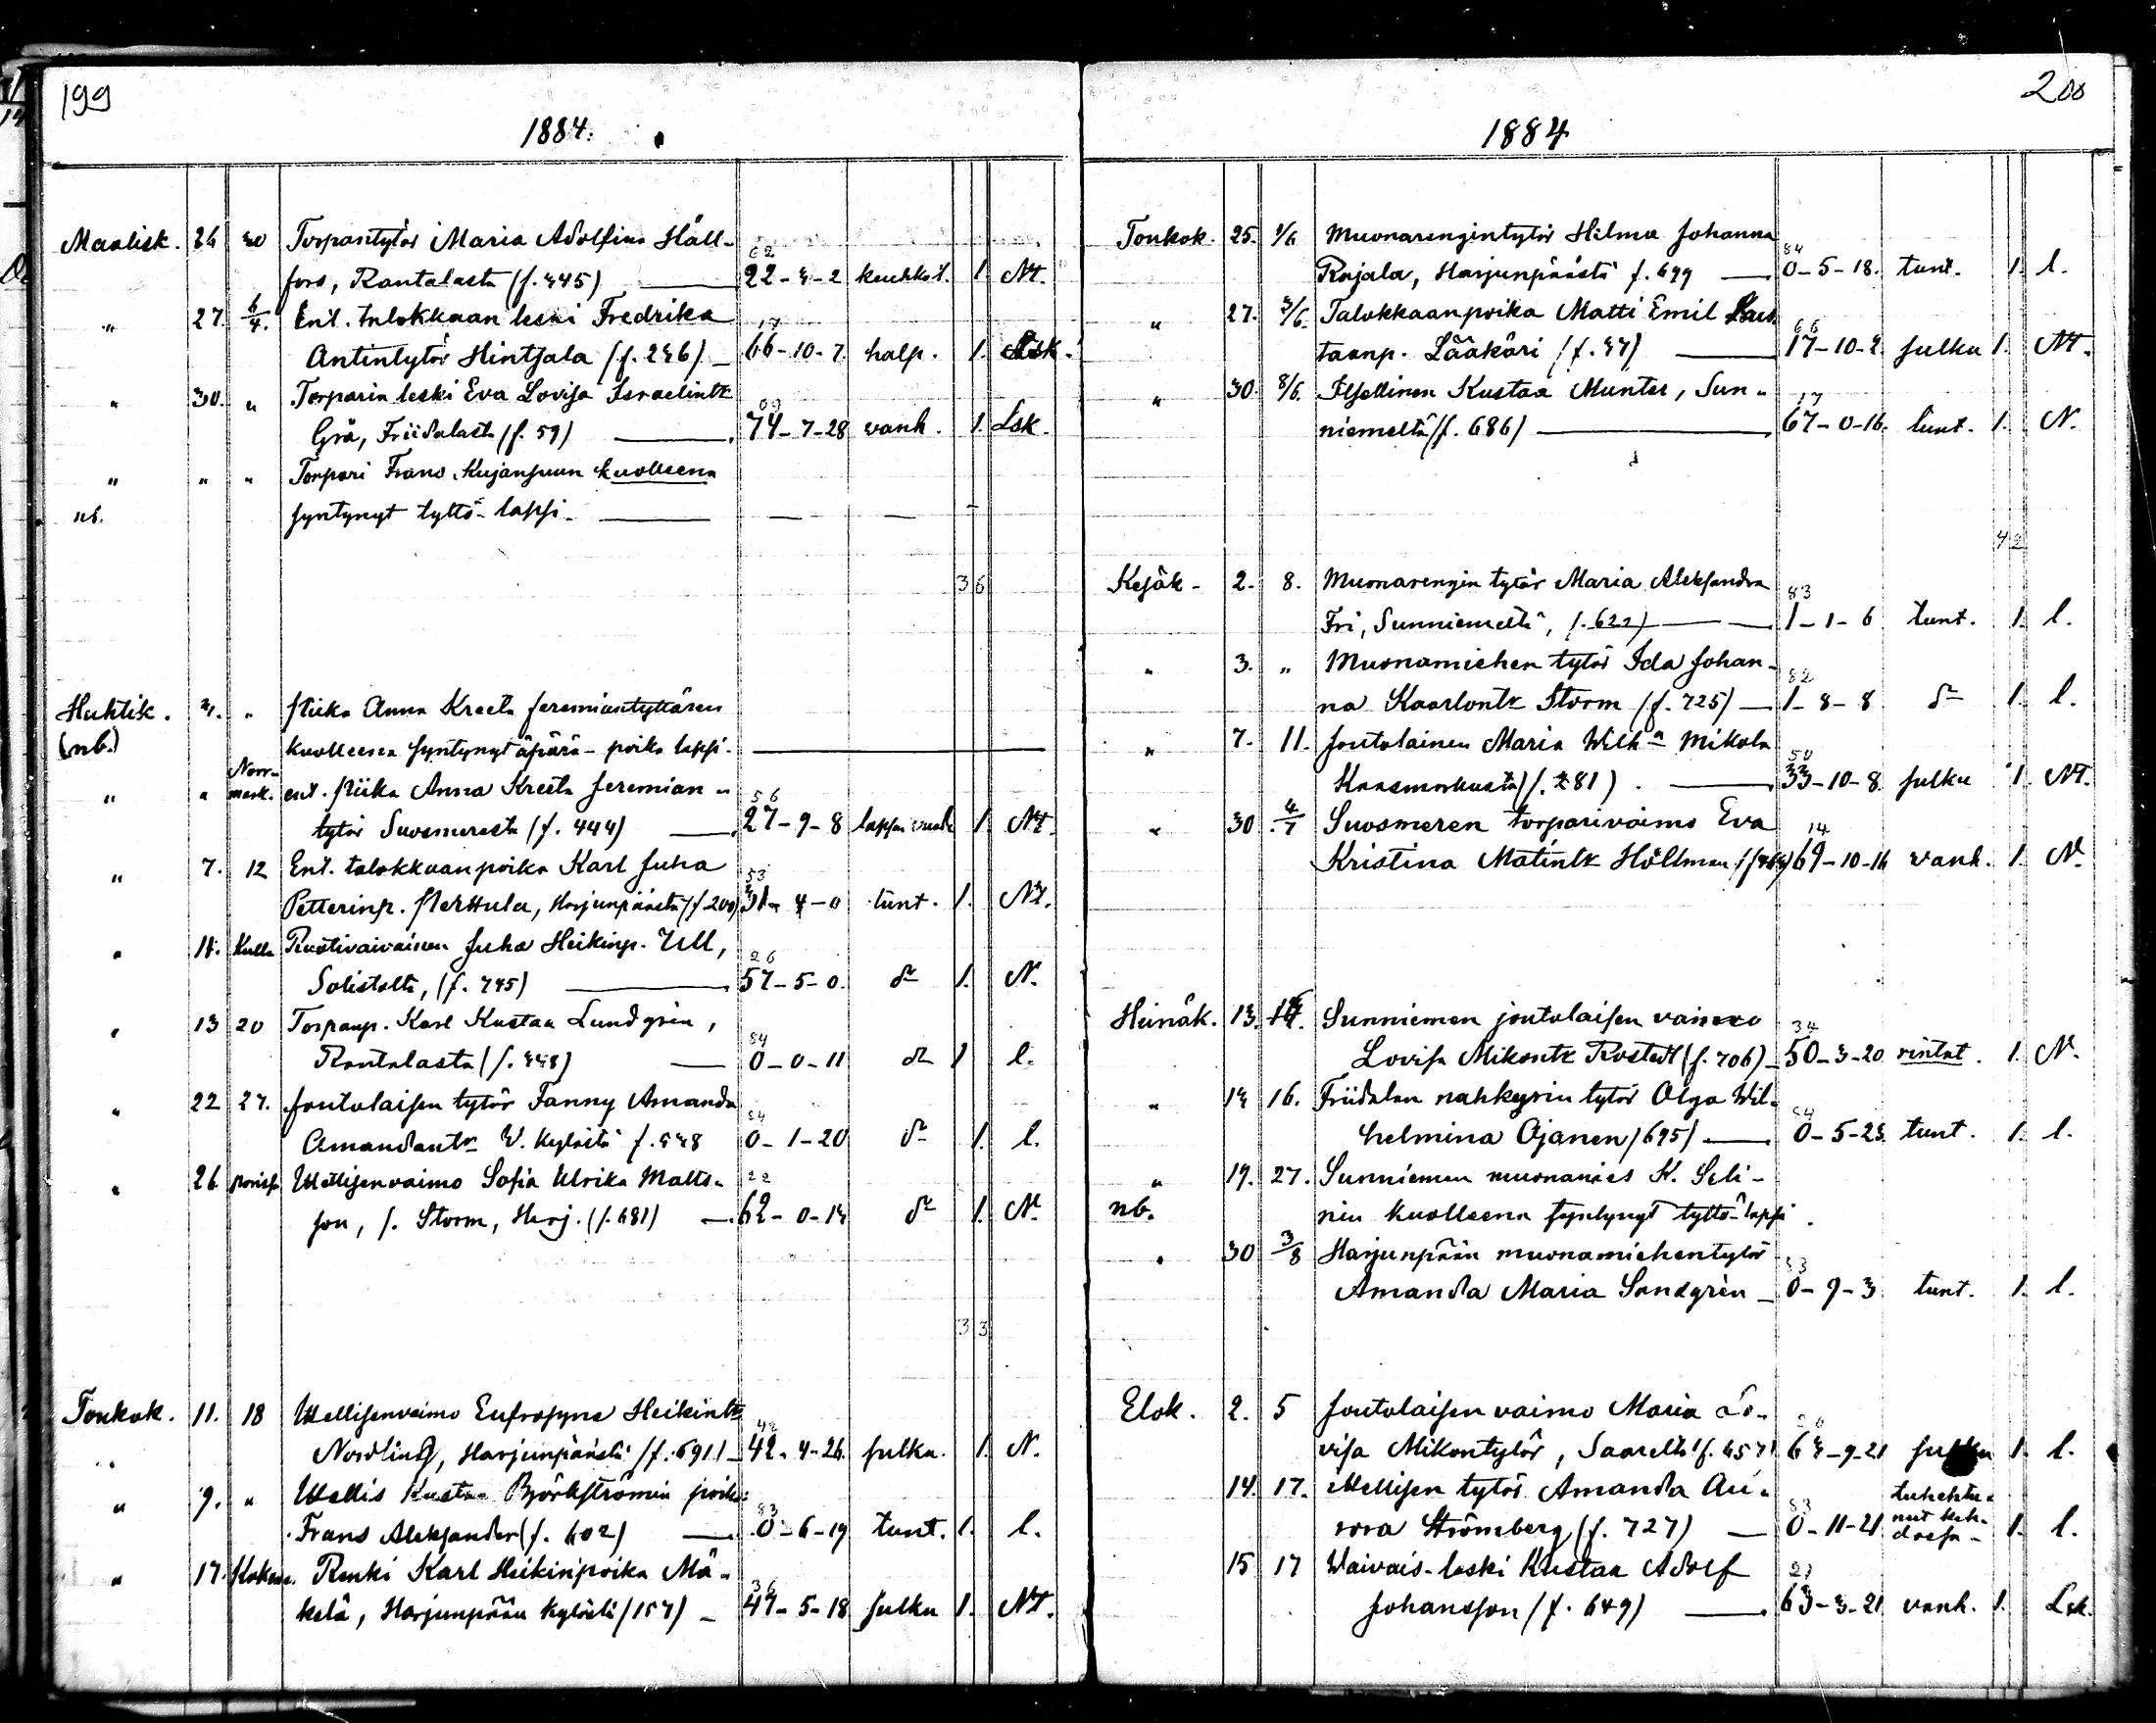 199
1884.
Maalisk. 26 30 Torpantytär Maria Adolfina Häll-
62
fors, Rantalasta (f. 445) — 22-4-2 keuhkot. 1. Nt.
" 27. 6/4. Ent. talokkaan leski Fredrika
17
Antintytär Hintsala (f. 246) — 66-10-7. halp. 1. Lsk.
" 30. " Torparin leski Eva Lovisa Israelintr
09
Grä, Friidalasta (f. 59) — 74-7-28 vanh. 1. Lsk.
" " " Torpari Frans Kujansuun kuolleena
nb. syntynyt tyttö-lapsi — — — -
3 6
Huhtik. 3. " Piika Anna Kreeta Jeremiantyttären
(nb.) kuolleena syntynyt äpärä-poika lapsi —
Norr-
" " mark. ent. Piika Anna Kreeta Jeremian-
56
tytär Suosmeresta (f. 444) — 27-9-8 lapsi vuode 1 Nt.
" 7. 12 Ent. talokkaanpoika Karl Juha
53
Petterinp. Merttula, Harjunpäästä (f. 200) 31-4-0 tunt. 1. Nt.
" 11. Kulla Ruotivaivainen Juha Heikinp. Ull,
26
Solistolta, (f. 745) — 57-5-0. d:o 1. N.
" 13 20 Torpanp. Karl Kustaa Lundgrén,
84
Rantalasta (f. 448) — 0-0-11 d:o 1 l.
" 22 27. Joutolaisen tytär Fanny Amanda
84
Amandantr V. kylästä f. 448 0-1-20 d:o 1. l.
" 26. Porissa Itsellisenvaimo Sofia Ulrika Matts-
22
son, f. Storm, Harj. (f. 681) — 62-0-14 d:o 1. N.
3 3
Toukok. 11. 18 Itsellisenvaimo Eufrosyne Heikintr
42
Nordlind, Harjunpäästä (f. 691) — 42-4-26. julka. 1. N.
" 9. " Itsellis Kustaa Björkströmin poika
83
Frans Aleksander (f. 602) — 0-6-19 tunt. 1. l.
" 17. Renki Karl Heikinpoika Mä-
36
kelä, Harjunpään kylästä (157) — 47-5-18 julku 1. Nt.
200
1884
Toukok. 25. 1/6 Muonarengintytär Hilma Johanna
84
Rajala, Harjunpäästä f. 699 — 0-5-18. tunt. 1. l.
" 27. 2/6. Talokkaanpoika Matti Emil Kus-
66
taanp. Lääkäri (f. 47) — 17-10-2 julku 1. Nt.
" 30. 8/6. Itsellinen Kustaa Munter, Sun-
17
niemeltä (f. 686) — 67-0-16. tunt. 1. N.
4 2
Kesäk- 2. 8. Muonarengin tytär Maria Aleksandra
83
Fri, Sunniemeltä, f. 622) — 1-1-6 tunt. 1. l.
" 3. " Muonamiehen tytär Ida Johan-
82
na Kaarlontr Storm (f. 725) — 1-8-8 d:o 1. l.
" 7. 11. Joutolainen Maria Wilh:a Mikola
50
Kaasmarkusta (f. 281) — 33-10-8 julku 1. Nt.
" 30. 4/7 Suosmeren torparivaimo Eva
14
Kristina Matintr Höllman 69-10-16 vanh. 1. N.
Heinäk. 13. Sunniemen joutolaisen vaimo
34
Lovisa Mikontr Rostedt (f. 706) — 50-3-20 rintat. 1. N.
" 14 16. Friidalan nahkyrin tytär Olga Wil-
84
helmina Ojanen (695) — 0-5-25. tunt. 1. l.
" 19. 27. Sunniemen muonamies K. Seli-
nb. nin kuolleena syntynyt tyttö-lapsi.
" 30 3/8 Harjunpään muonamiehentytär
83
Amanda Maria Sandgrén — 0-9-3 tunt. 1. l.
Elok. 2. 5 Joutolaisen vaimo Maria Lo-
20
visa Mikontytär, Saarelta (f. 657) 64-9-21 julku 1. l.
14. 17. Itsellisen tytär Amanda Au-
tukehtu-
83
rora Strömberg (f. 727) — 0-11-21 nut keh-
dossa- 1. l.
15 17 Waivais-leski Kustaa Adolf
21
Johansson (f. 649) — 63-3-21 vanh. 1. Lsk.